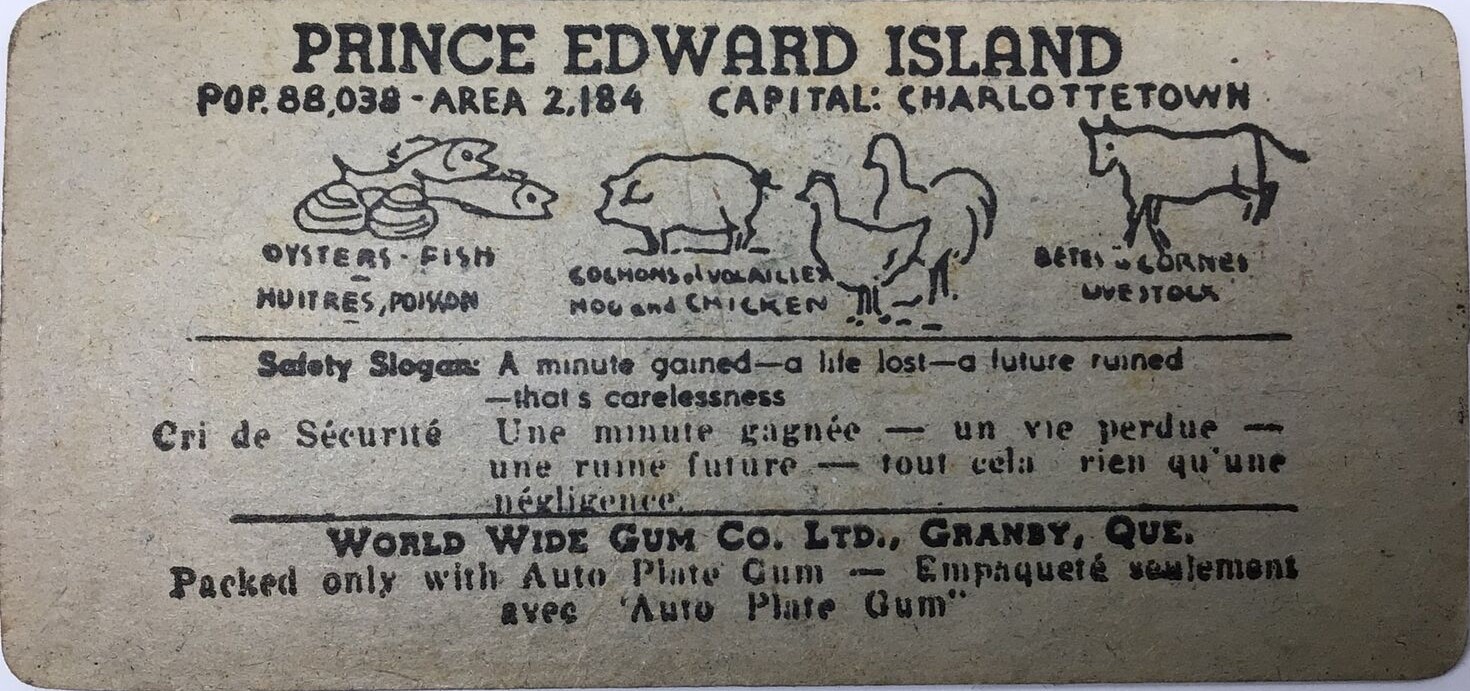 PRINCE EDWARD ISLAND
POP. 88,038 - AREA 2,184 CAPITAL: CHARLOTTETOWN
OYSTERS - FISH
HUITRES, POISSON
COCHONS et VOLAILLES
HOG and CHICKEN
BETES à CORNES
LIVESTOCK
Safety Slogan: A minute gained—a life lost—a future ruined
—that's carelessness
Cri de Sécurité Une minute gagnée — un vie perdue —
une ruine future — tout cela rien qu'une
négligence.
WORLD WIDE GUM CO. LTD., GRANBY, QUE.
Packed only with Auto Plate Gum — Empaqueté seulement
avec "Auto Plate Gum"